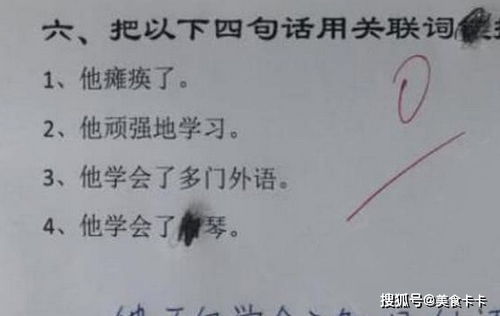 六、把以下四句话用关联词
1、他瘫痪了。
2、他顽强地学习。
3、他学会了多门外语。
4、他学会了琴。
0
搜狐号@美食卡卡